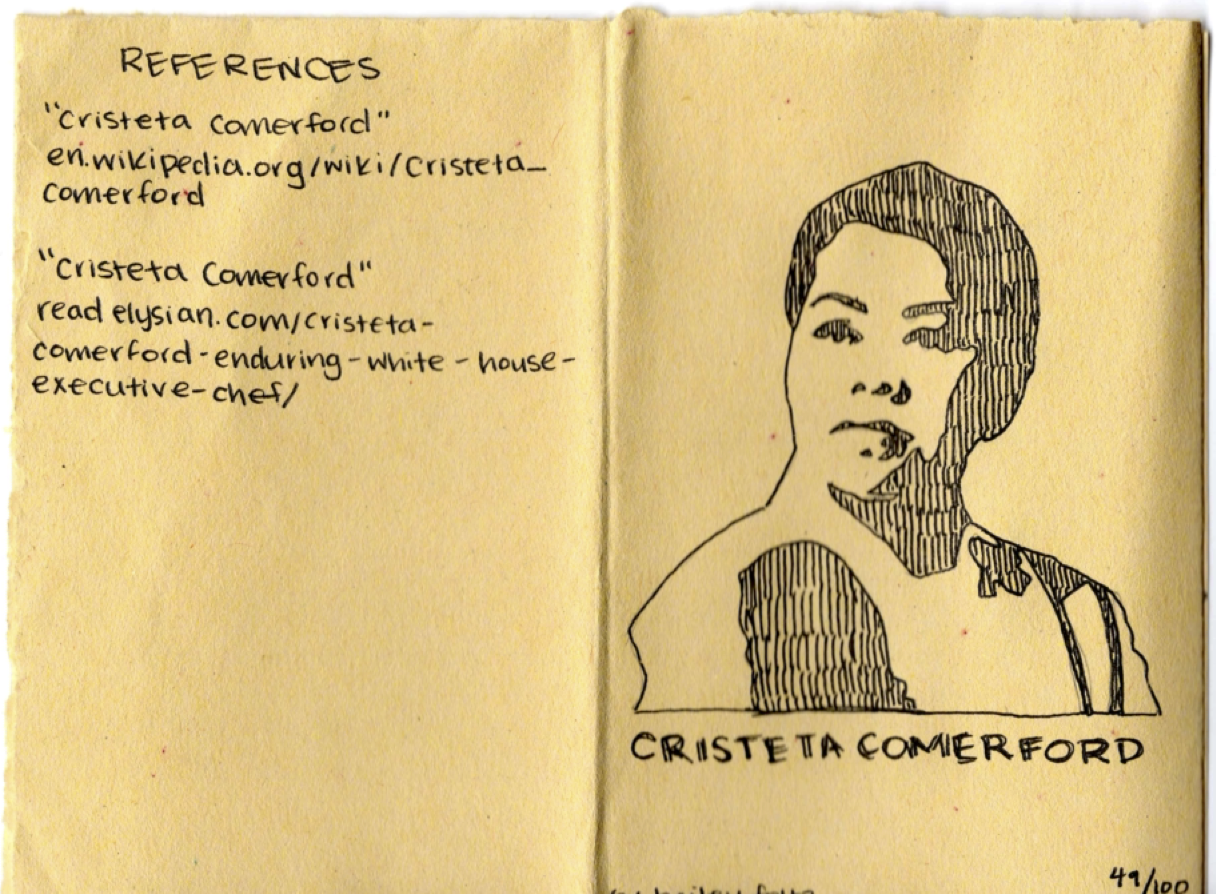 REFERENCES
"Cristeta Comerford"
en.wikipedia.org/wiki/Cristeta_
Comerford
"Cristeta Comerford"
readelysian.com/cristeta-
comerford-enduring-white-house-
executive-chef/
CRISTETA COMERFORD
49/100